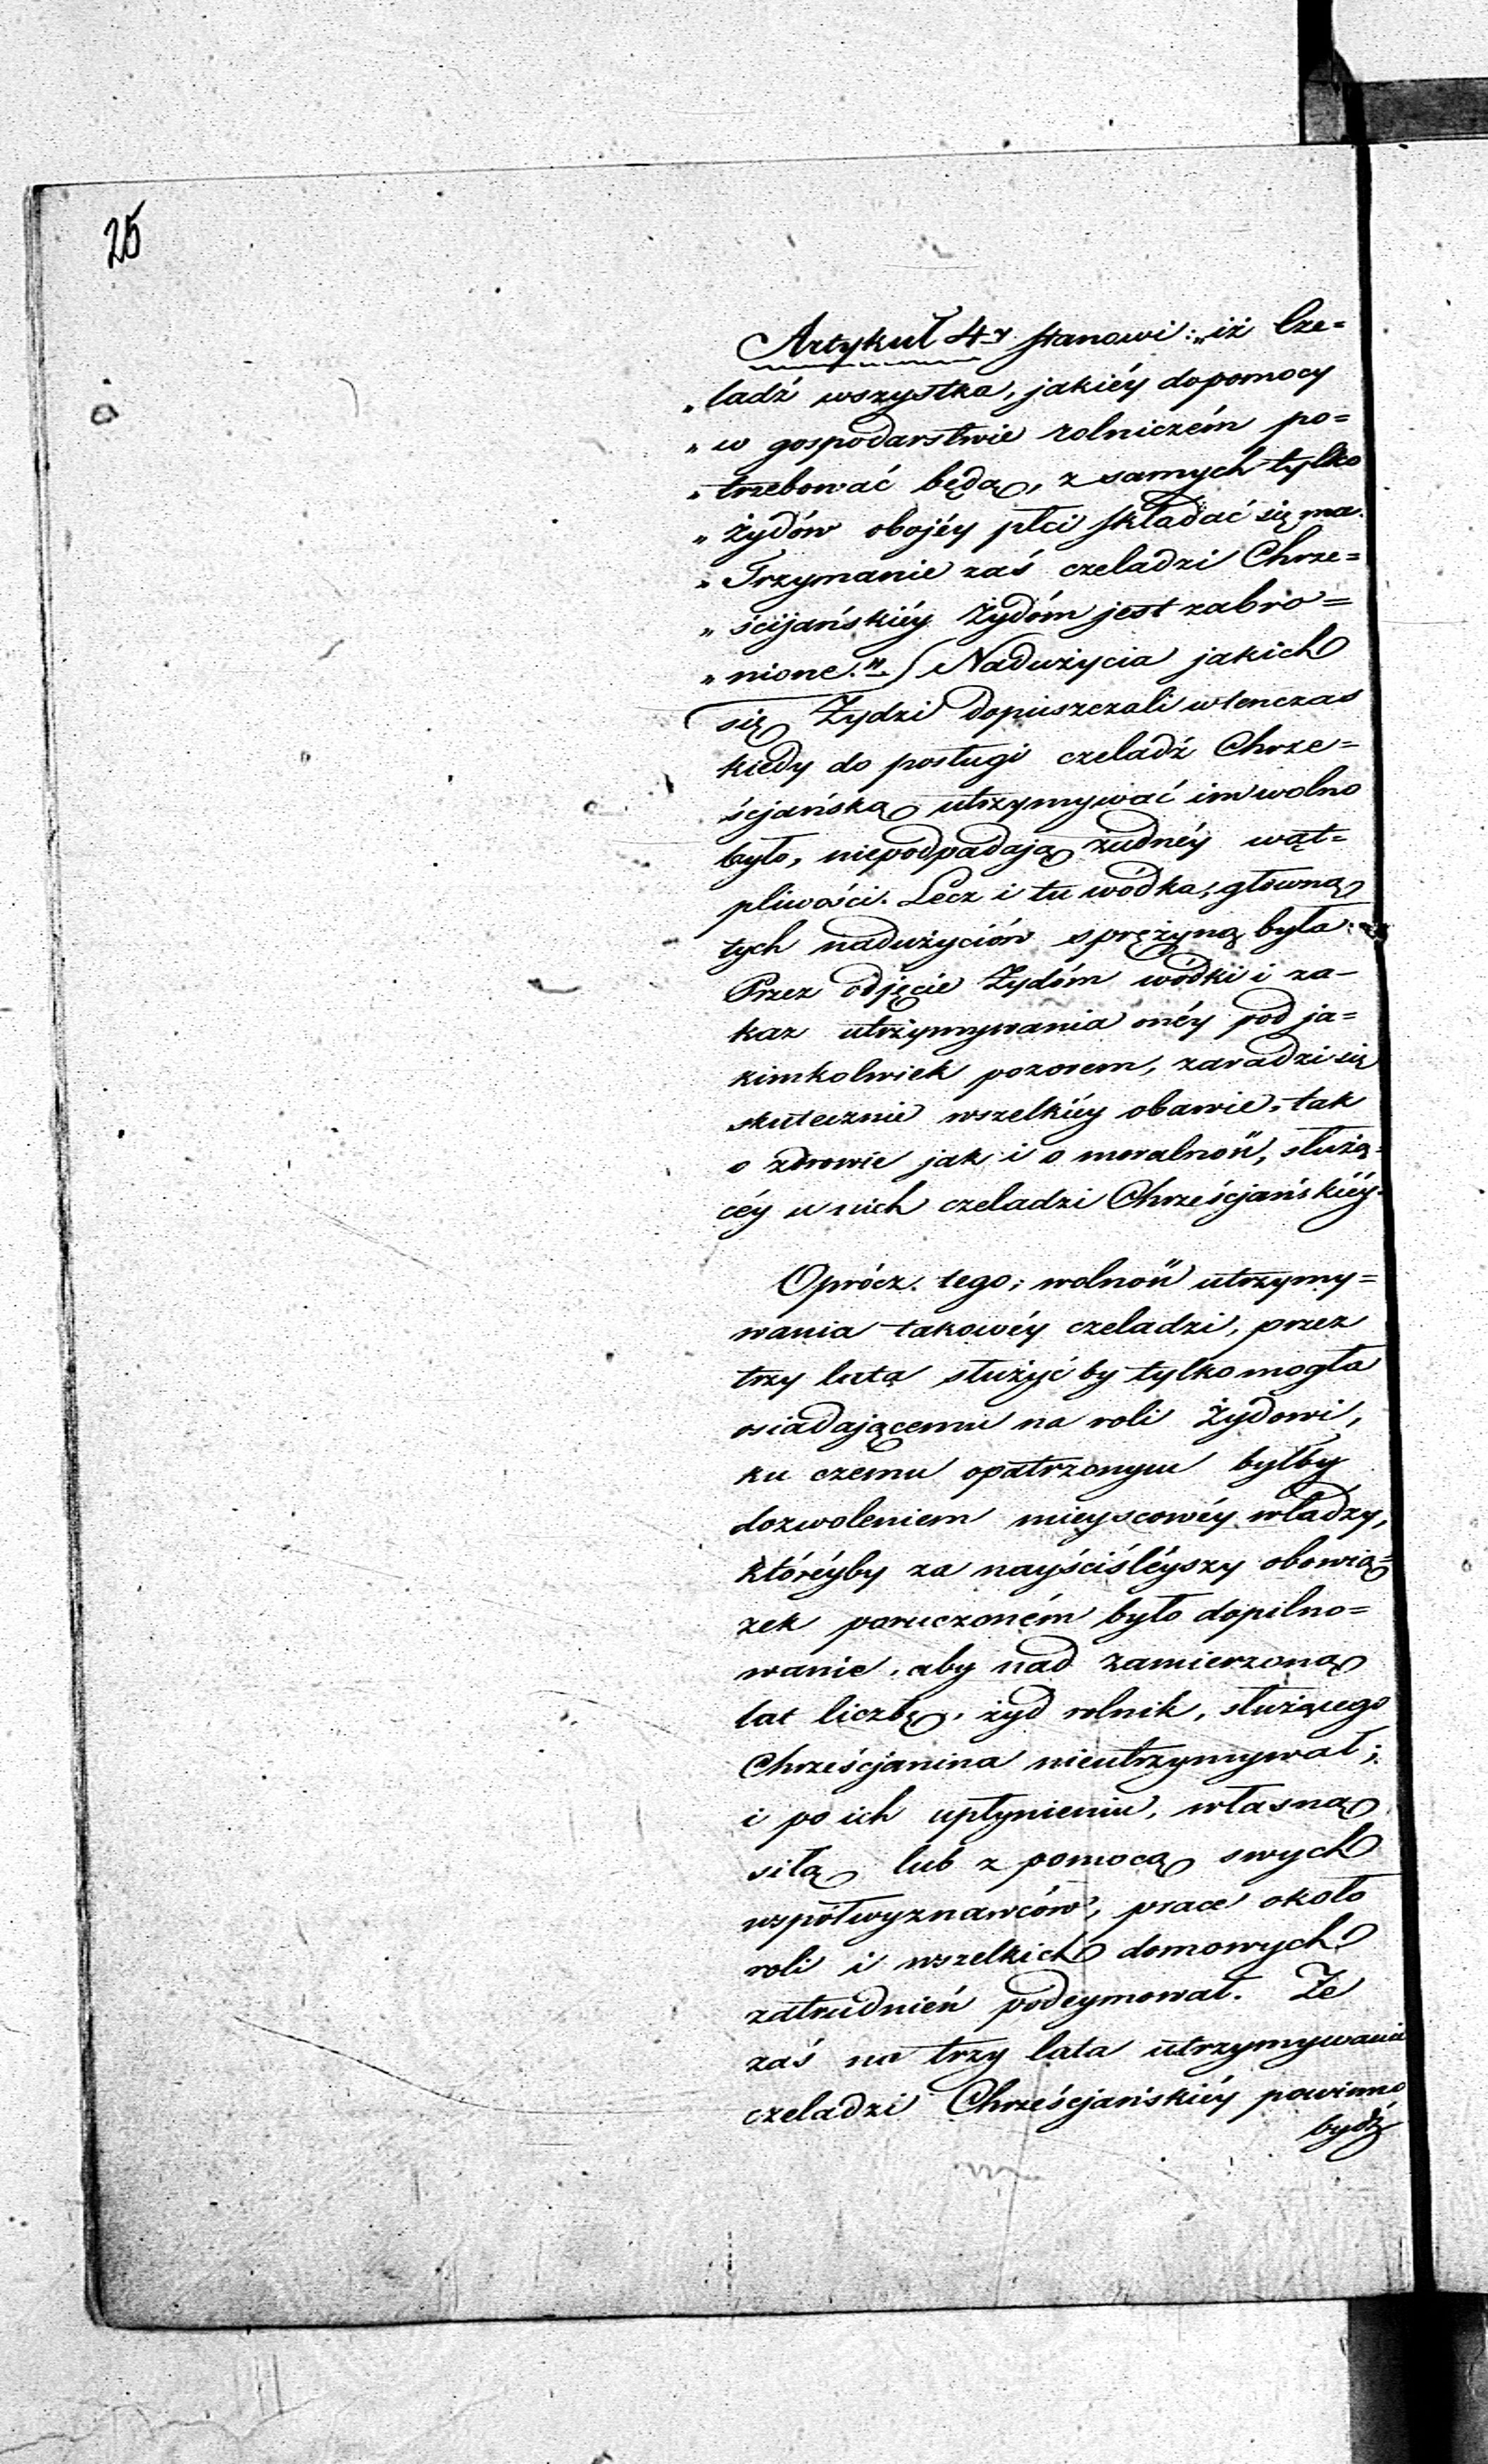 25
Artykuł 4ʸ stanowi: „iż Cze=
„ladź wszystka, jakiéy do pomocy
„w gospodarstwie rolniczém po=
„trzebować będą, z samych tylko
„żydów obojéy płci składać się ma.
„Trzymanie zaś czeladzi Chrze=
„ścijańskiéy Żydóm jest zabro=
„nione." Nadużycia jakich
się Żydzi dopuszczali wtenczas
kiedy do posługi czeladź Chrze=
ścjańską utrzymywać im wolno
było, niepodpadają żadnéy wąt=
pliwości. Lecz i tu wódka, główną
tych nadużyciów sprężyną była.
Przez odjęcie Żydóm wódki i za-
kaz utrzymywania onéy pod ja=
kimkolwiek pozorem, zaradzi się
skutecznie wszelkiéy obawie, tak
o zdrowie jak i o moralność, służą=
céy u nich czeladzi Chrześcjańskiéy.
Oprócz tego, wolność utrzymy=
wania takowéy czeladzi, przez
trzy lata służyć by tylko mogła
osiadającemu na roli Żydowi,
ku czemu opatrzonym byłby
dozwoleniem mieyscowéy władzy,
któréyby za nayściśléyszy obowią=
zek poruczoném było dopilno=
wanie, aby nad zamierzoną
lat liczbę, żyd rolnik, służącego
Chrześcjanina nieutrzymywał;
i po ich upłynieniu, własną
siłą lub z pomocą swych
współwyznawców, prace około
roli i wszelkich domowych
zatrudnień podeymował. Że
zaś na trzy lata utrzymywanie
czeladzi Chrześcjańskiéy powinno
bydź